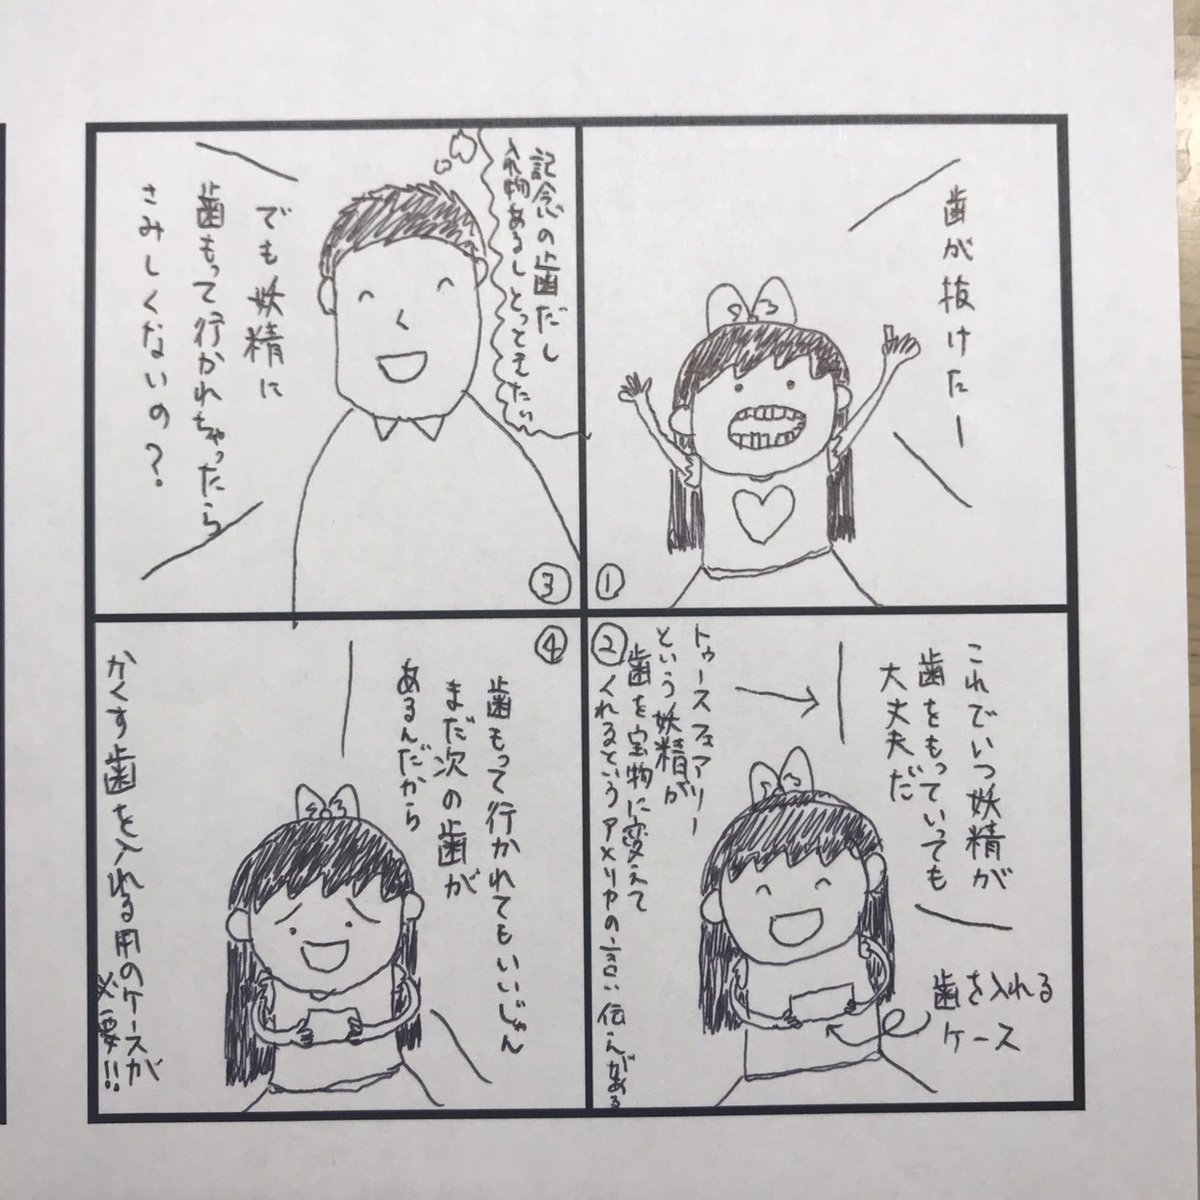 ①
歯が抜けたー
②
これでいつ妖精が
歯をもっていっても
大丈夫だ
歯を入れる
ケース
トゥースフェアリー
という妖精が
歯を宝物に変えて
くれるというアメリカの言い伝えがある
③
記念の歯だし
入れ物あるしとっておきたい
でも妖精に
歯もって行かれちゃったら
さみしくないの?
④
歯もって行かれてもいいじゃん
まだ次の歯が
あるんだから
かくす歯を入れる用のケースが
必要!!